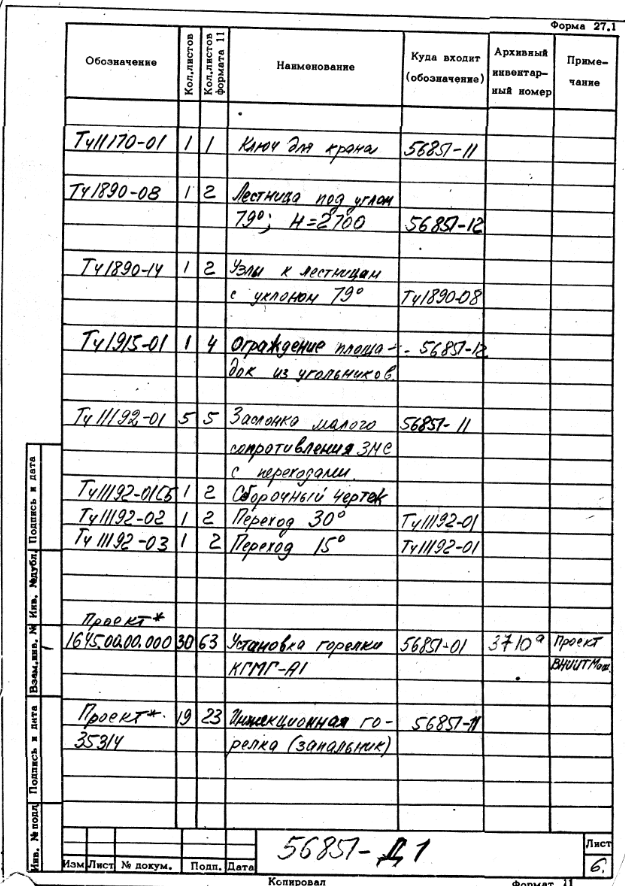 Форма 27.1
Обозначение | Кол.листов | Кол.листов формата 11 | Наименование | Куда входит (обозначение) | Архивный инвентарный номер | Примечание
Ту11170-01 1 1 Ключ для крана 56851-11
Ту1890-08 1 2 Лестница под углом
79°; H=2700 56851-12
Ту1890-14 1 2 Узлы к лестницам
с уклоном 79° Ту1890-08
Ту1915-01 1 4 Ограждение площа- 56851-12
док из угольников.
Ту11192-01 5 5 Заслонка малого 56851-11
сопротивления ЗМС
с переходами
Ту11192-01СБ 1 2 Сборочный чертеж
Ту11192-02 1 2 Переход 30° Ту11192-01
Ту11192-03 1 2 Переход 15° Ту11192-01
Проект*
1645.00.00.000 30 63 Установка горелки 56851-01 3710а Проект
КГМГ-А1 ВНИИТМаш.
Проект* 19 23 Инжекционная го- 56851-11
35314 релка (запальник)
Инв. № подл. Подпись и дата Взам.инв. № Инв. №дубл. Подпись и дата
56851-Д1
Лист
6.
Изм Лист № докум. Подп. Дата
Копировал Формат 11